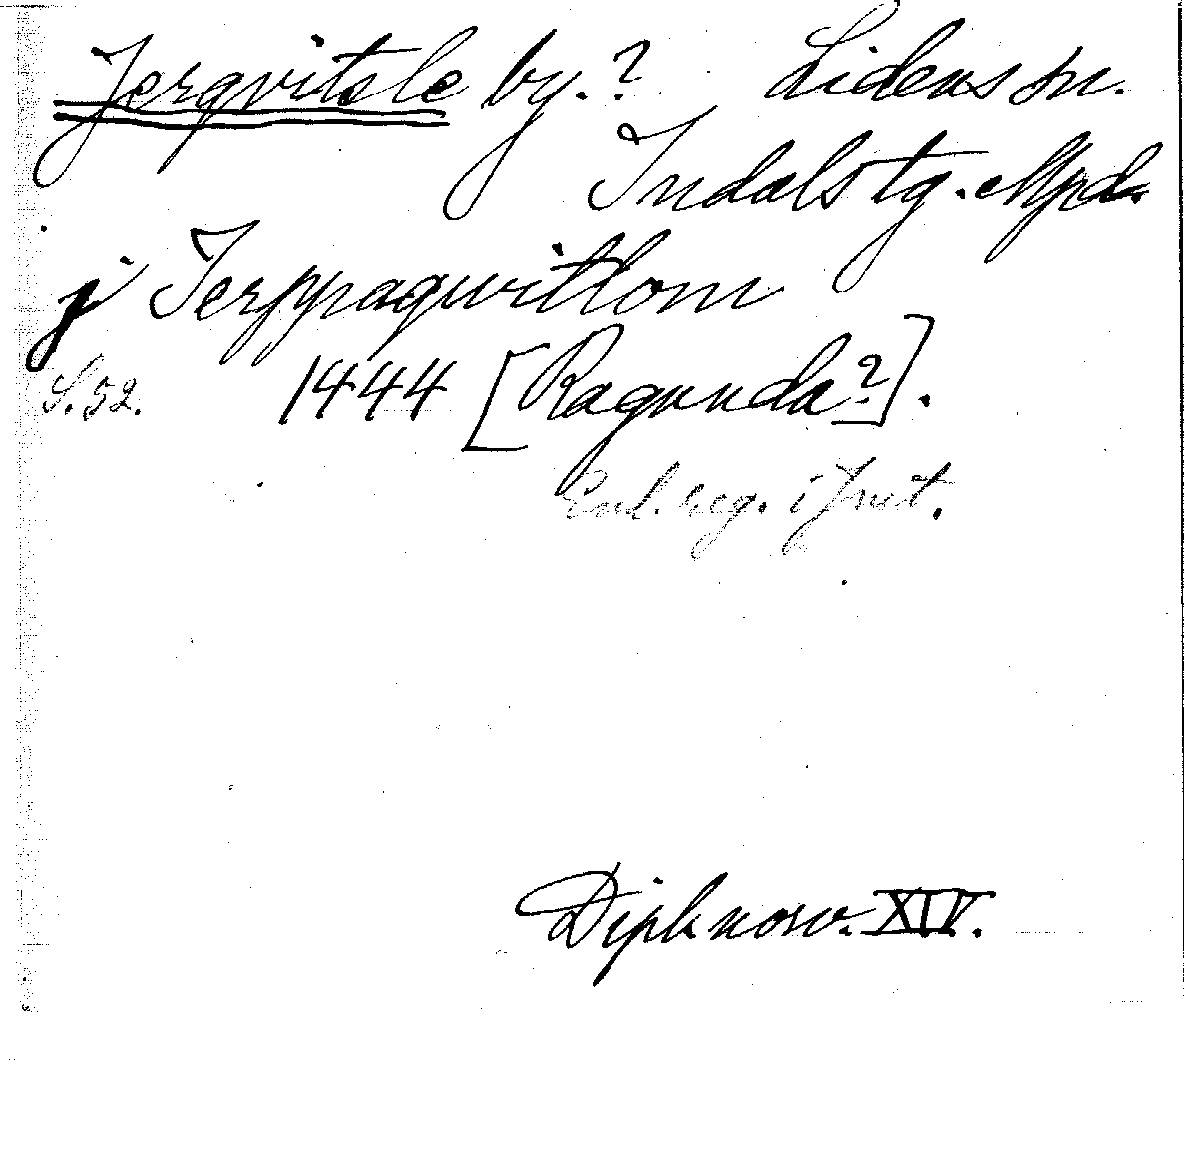 Jerqvitsle by.? Lidens sn.
Indals tg. Mpd.
j Jerppaquitlom
S. 52. 1444 [Ragunda?].
Enl. reg. i Jmt.
Dipl. norv. XIV.